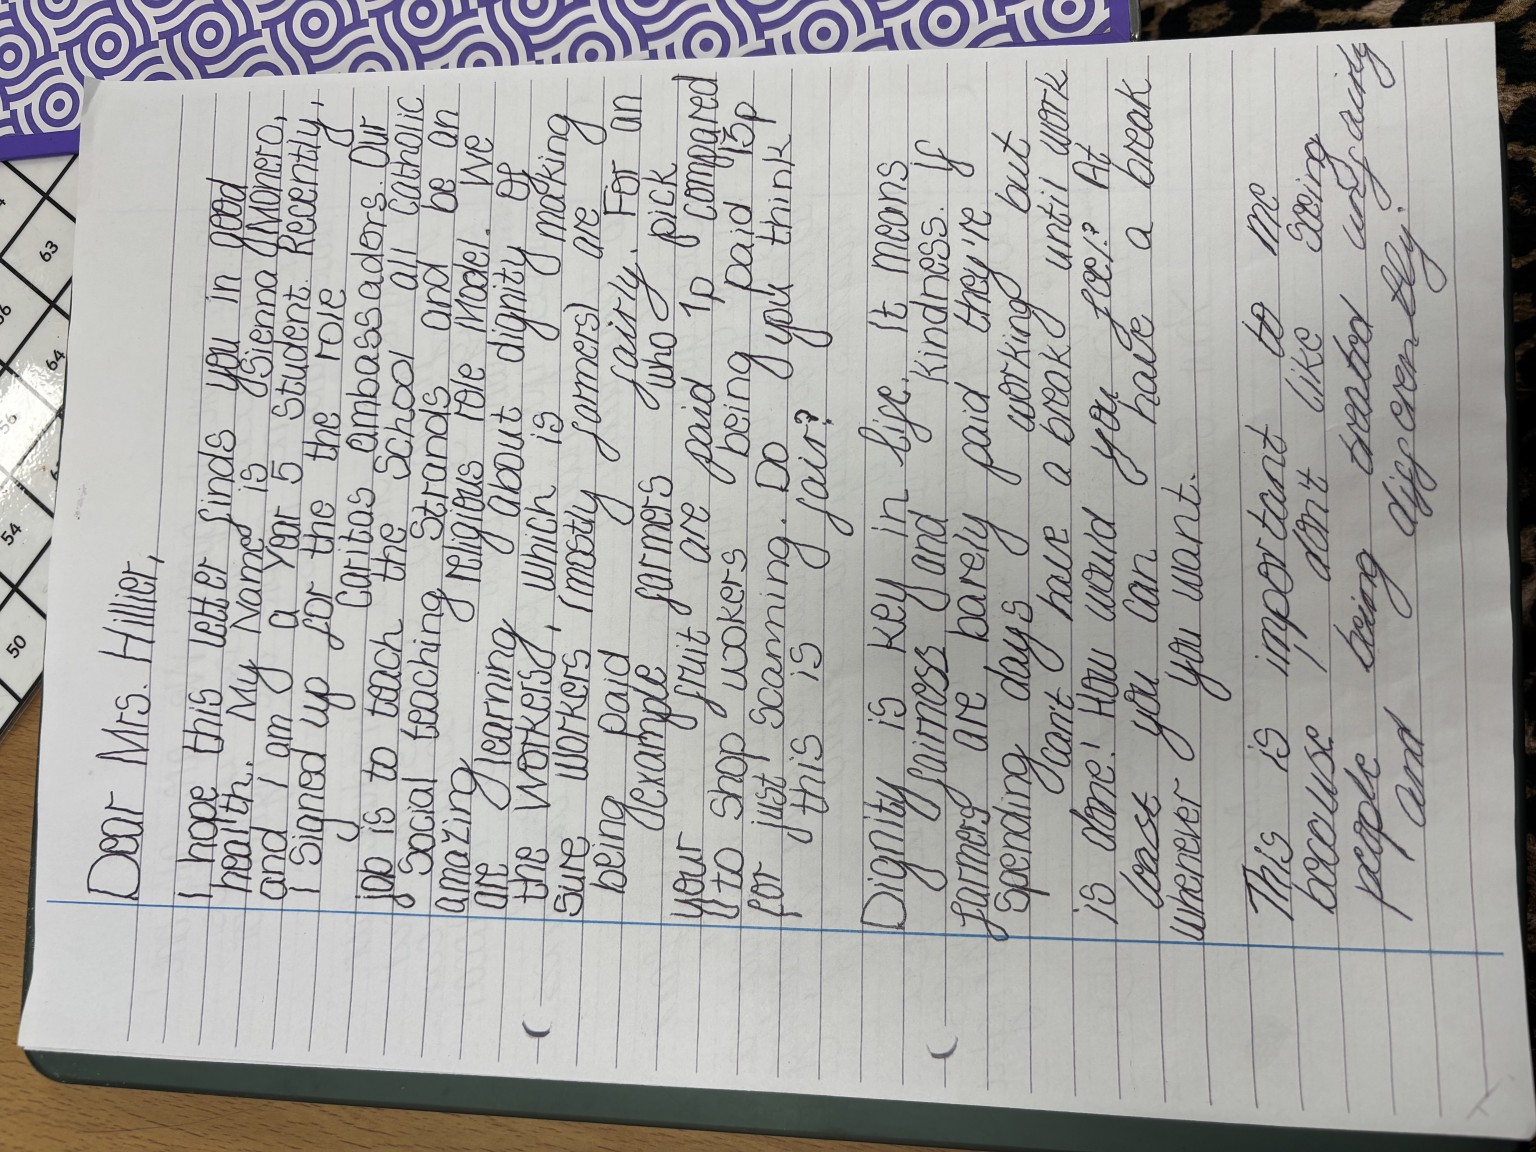 Dear Mrs. Hillier,
I hope this letter finds you in good
health. My Name is (Sienna Monero,
and I am a Year 5 student. Recently,
I signed up for the the role
Caritas ambassaders. Our
job is to teach the School all catholic
social teaching Strands and be an
amazing religious role model. We
are learning about dignity of
the workers, which is making
sure workers (mostly farmers) are
being paid fairly. For an
example farmers who pick
your fruit are paid 1p compared
to shop wokers being paid 13p
for just scanning. Do you think
this is fair?
Dignity is key in life. It means
fairness and kindness. If
farmers are barely paid they're
spending days working but
can't have a break until work
is done! How would you feel? At
least you can have a break
whenever you want.
This is important to me
because I don't like Seeing
people being treated unfairly
and differently.
63
64
56
54
50